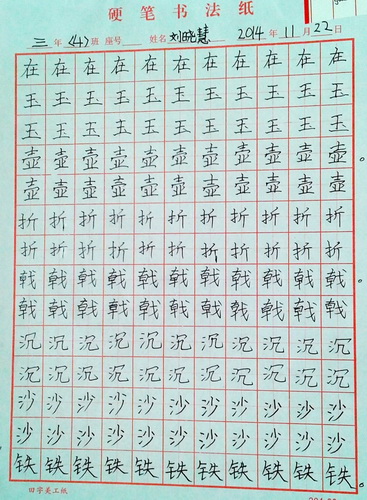 硬笔书法纸
三年〈4〉班 座号 姓名 刘晓慧 2014年11月22日
在在在在在在在在在在在
玉玉玉玉玉玉玉玉玉玉玉
玉玉玉玉玉玉玉玉玉玉玉
壶壶壶壶壶壶壶壶壶壶壶。
壶壶壶壶壶壶壶壶壶壶壶
折折折折折折折折折折折
折折折折折折折折折折折
戟戟戟戟戟戟戟戟戟戟戟。
戟戟戟戟戟戟戟戟戟戟戟
沉沉沉沉沉沉沉沉沉沉沉
沉沉沉沉沉沉沉沉沉沉沉
沙沙沙沙沙沙沙沙沙沙沙
沙沙沙沙沙沙沙沙沙沙沙
铁铁铁铁铁铁铁铁铁铁铁。
田字美工纸